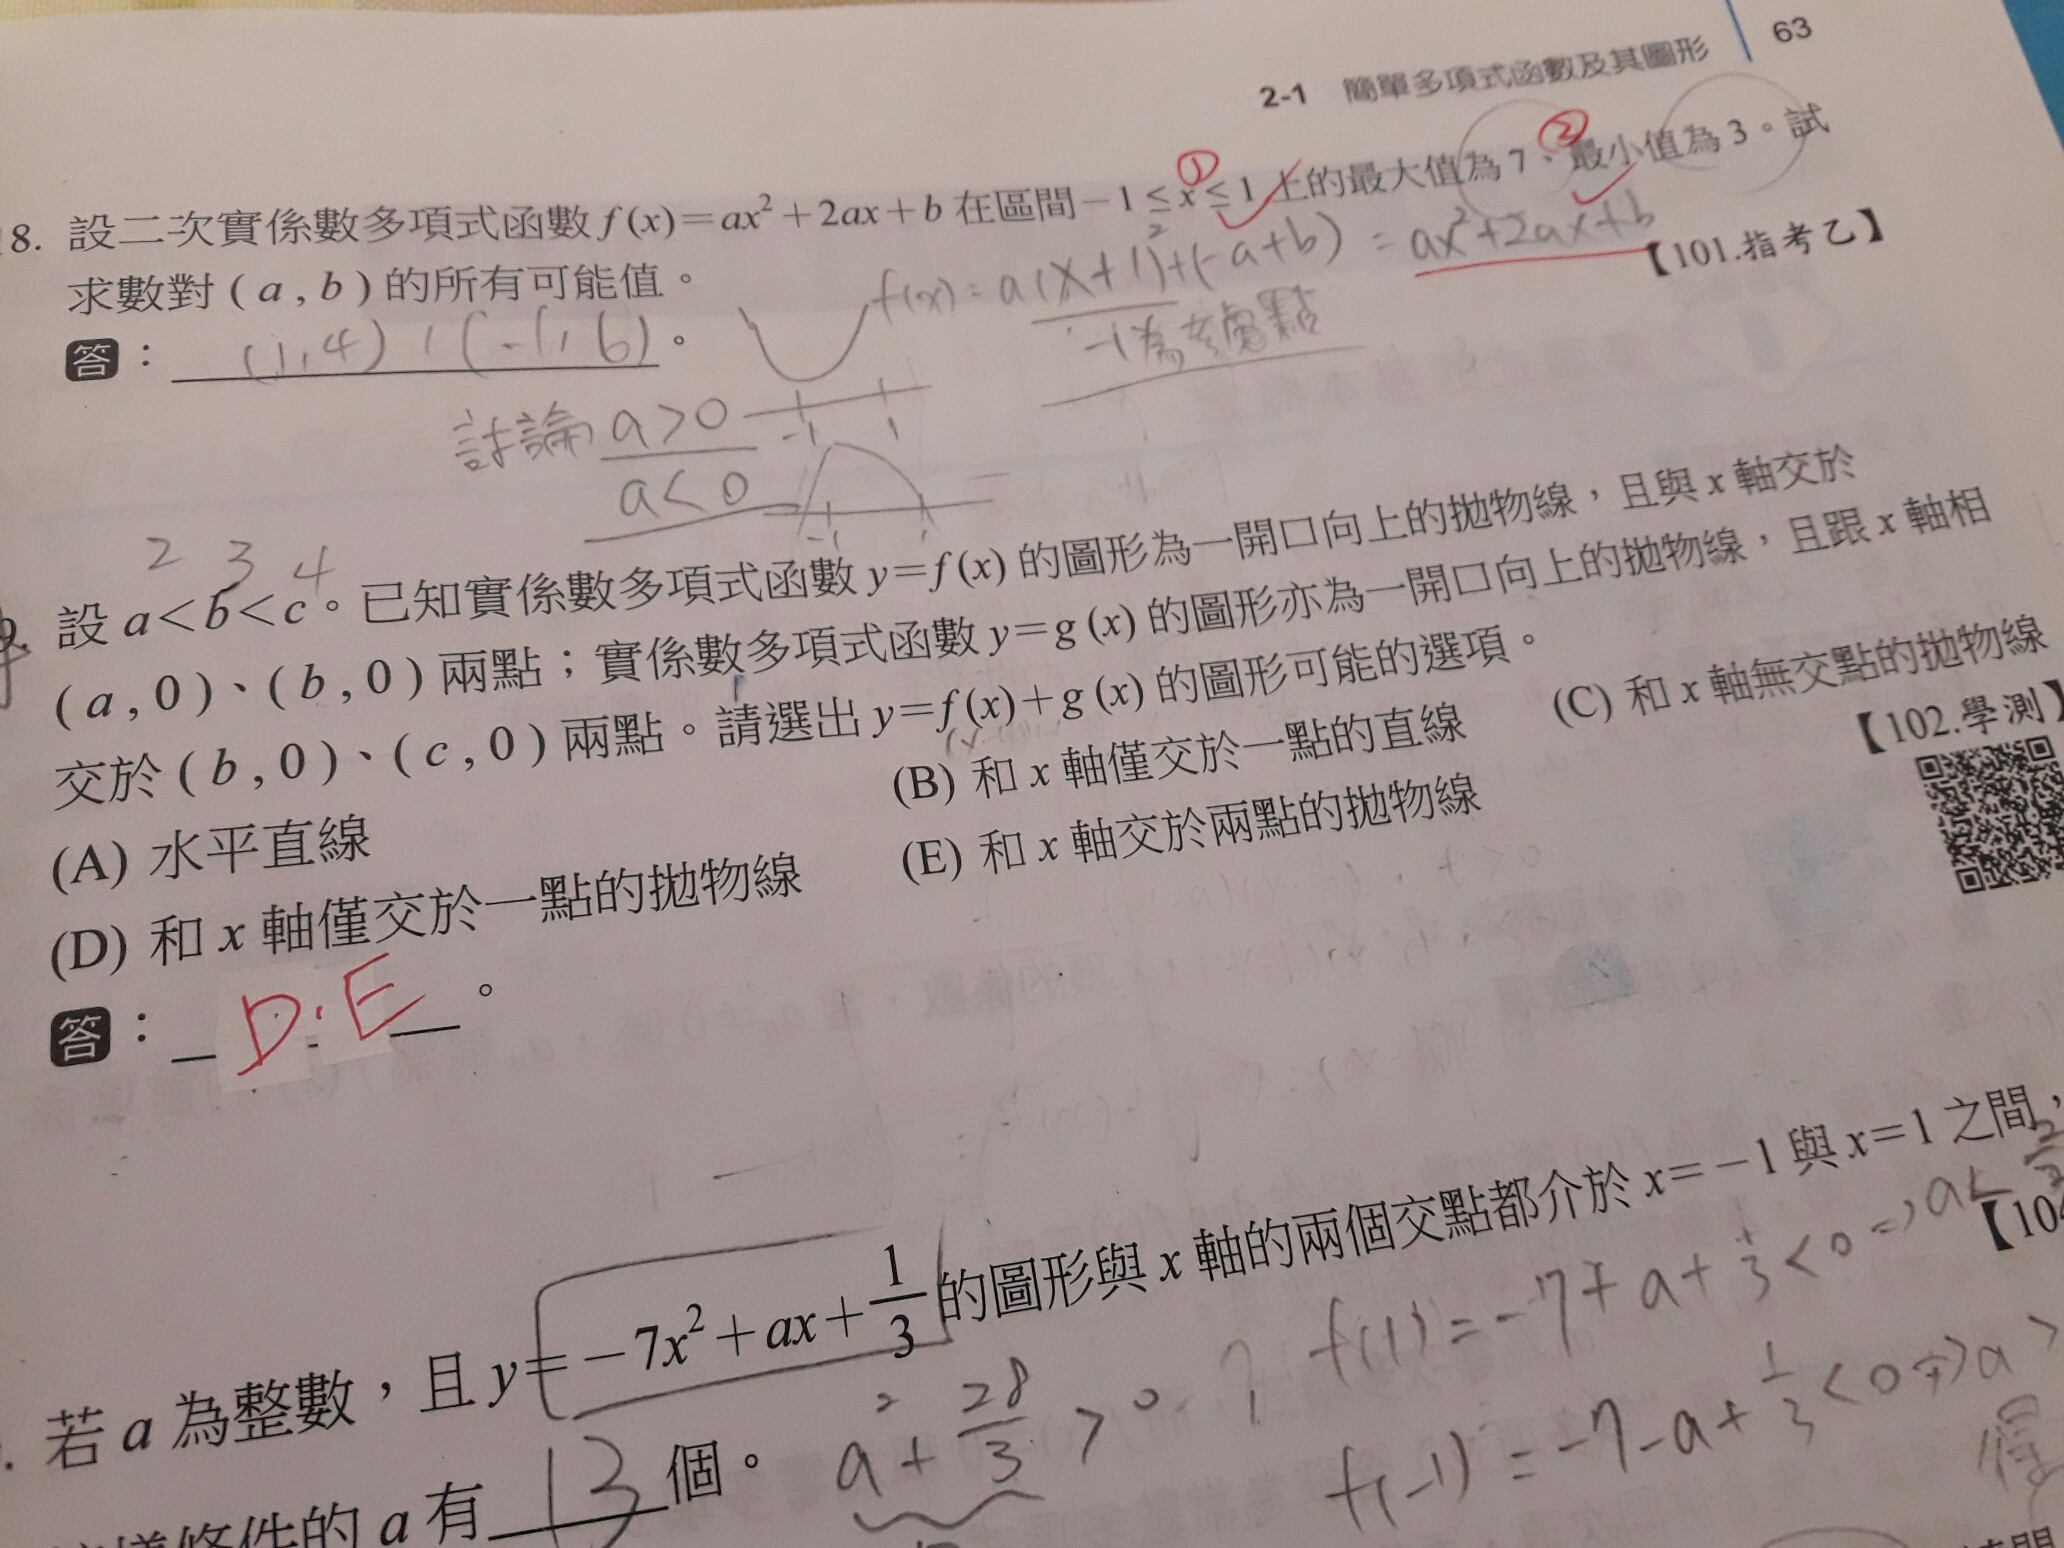 2-1 簡單多項式函數及其圖形 63
18. 設二次實係數多項式函數 f(x)=ax²+2ax+b 在區間 −1≤x≤1 上的最大值為 7、最小值為 3。試
① ②
求數對 (a,b) 的所有可能值。
f(x)=a(x+1)²+(-a+b) = ax²+2ax+b
【101.指考乙】
答: (1,4), (-1,6)。
討論 a>0
-1 1
a<0
-1 1
2 3 4
設 a<b<c。已知實係數多項式函數 y=f(x) 的圖形為一開口向上的拋物線,且與 x 軸交於
(a,0)、(b,0) 兩點;實係數多項式函數 y=g(x) 的圖形亦為一開口向上的拋物線,且跟 x 軸相
交於 (b,0)、(c,0) 兩點。請選出 y=f(x)+g(x) 的圖形可能的選項。
(A) 水平直線 (B) 和 x 軸僅交於一點的直線 (C) 和 x 軸無交點的拋物線
(D) 和 x 軸僅交於一點的拋物線 (E) 和 x 軸交於兩點的拋物線 【102.學測】
答: D.E。
若 a 為整數,且 y=−7x²+ax+1/3 的圖形與 x 軸的兩個交點都介於 x=−1 與 x=1 之間,
條件的 a 有 13 個。
a²+28/3>0
f(1)=-7+a+1/3<0 => a<
f(-1)=-7-a+1/3<0 => a>